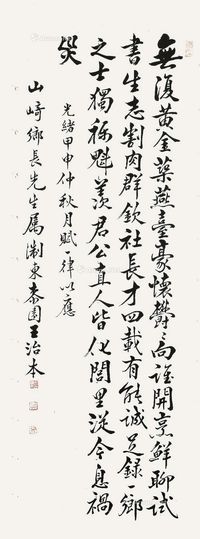 無復黃金築燕臺豪懷鬱鬱向誰開烹鮮聊試
書生志割肉群欽社長才四載有能誠足錄一鄉
之士獨稱魁羨君公直人皆化閭里從今息禍
災
光緒甲申仲秋月賦一律以應
山崎鄉長先生屬淛東桼園王治本